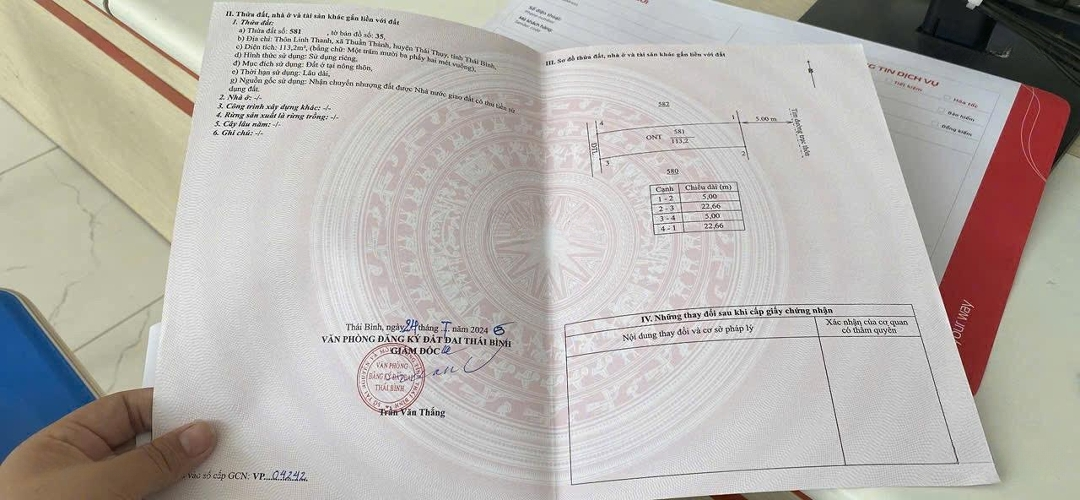 II. Thửa đất, nhà ở và tài sản khác gắn liền với đất
1. Thửa đất:
a) Thửa đất số: 581 , tờ bản đồ số: 35,
b) Địa chỉ: Thôn Linh Thanh, xã Thuần Thành, huyện Thái Thụy, tỉnh Thái Bình,
c) Diện tích: 113,2m², (bằng chữ: Một trăm mười ba phẩy hai mét vuông),
d) Hình thức sử dụng: Sử dụng riêng,
đ) Mục đích sử dụng: Đất ở tại nông thôn,
e) Thời hạn sử dụng: Lâu dài,
g) Nguồn gốc sử dụng: Nhận chuyển nhượng đất được Nhà nước giao đất có thu tiền sử
dụng đất.
2. Nhà ở: -/-
3. Công trình xây dựng khác: -/-
4. Rừng sản xuất là rừng trồng: -/-
5. Cây lâu năm: -/-
6. Ghi chú: -/-
Thái Bình, ngày 24 tháng I năm 2024
VĂN PHÒNG ĐĂNG KÝ ĐẤT ĐAI THÁI BÌNH
GIÁM ĐỐC
VĂN PHÒNG
ĐĂNG KÝ ĐẤT ĐAI
THÁI BÌNH
Trần Văn Thắng
vào sổ cấp GCN: VP 04242
III. Sơ đồ thửa đất, nhà ở và tài sản khác gắn liền với đất
582
4
1
5.00 m
Tim đường trục thôn
ĐTL
ONT
581
113,2
3
2
580
Cạnh Chiều dài (m)
1 - 2 5,00
2 - 3 22,66
3 - 4 5,00
4 - 1 22,66
IV. Những thay đổi sau khi cấp giấy chứng nhận
Nội dung thay đổi và cơ sở pháp lý
Xác nhận của cơ quan
có thẩm quyền
Số điện thoại:
Mã khách hàng
TIN DỊCH VỤ
Tiết kiệm
Hỏa tốc
Bảo hiểm
Đồng kiểm
your way